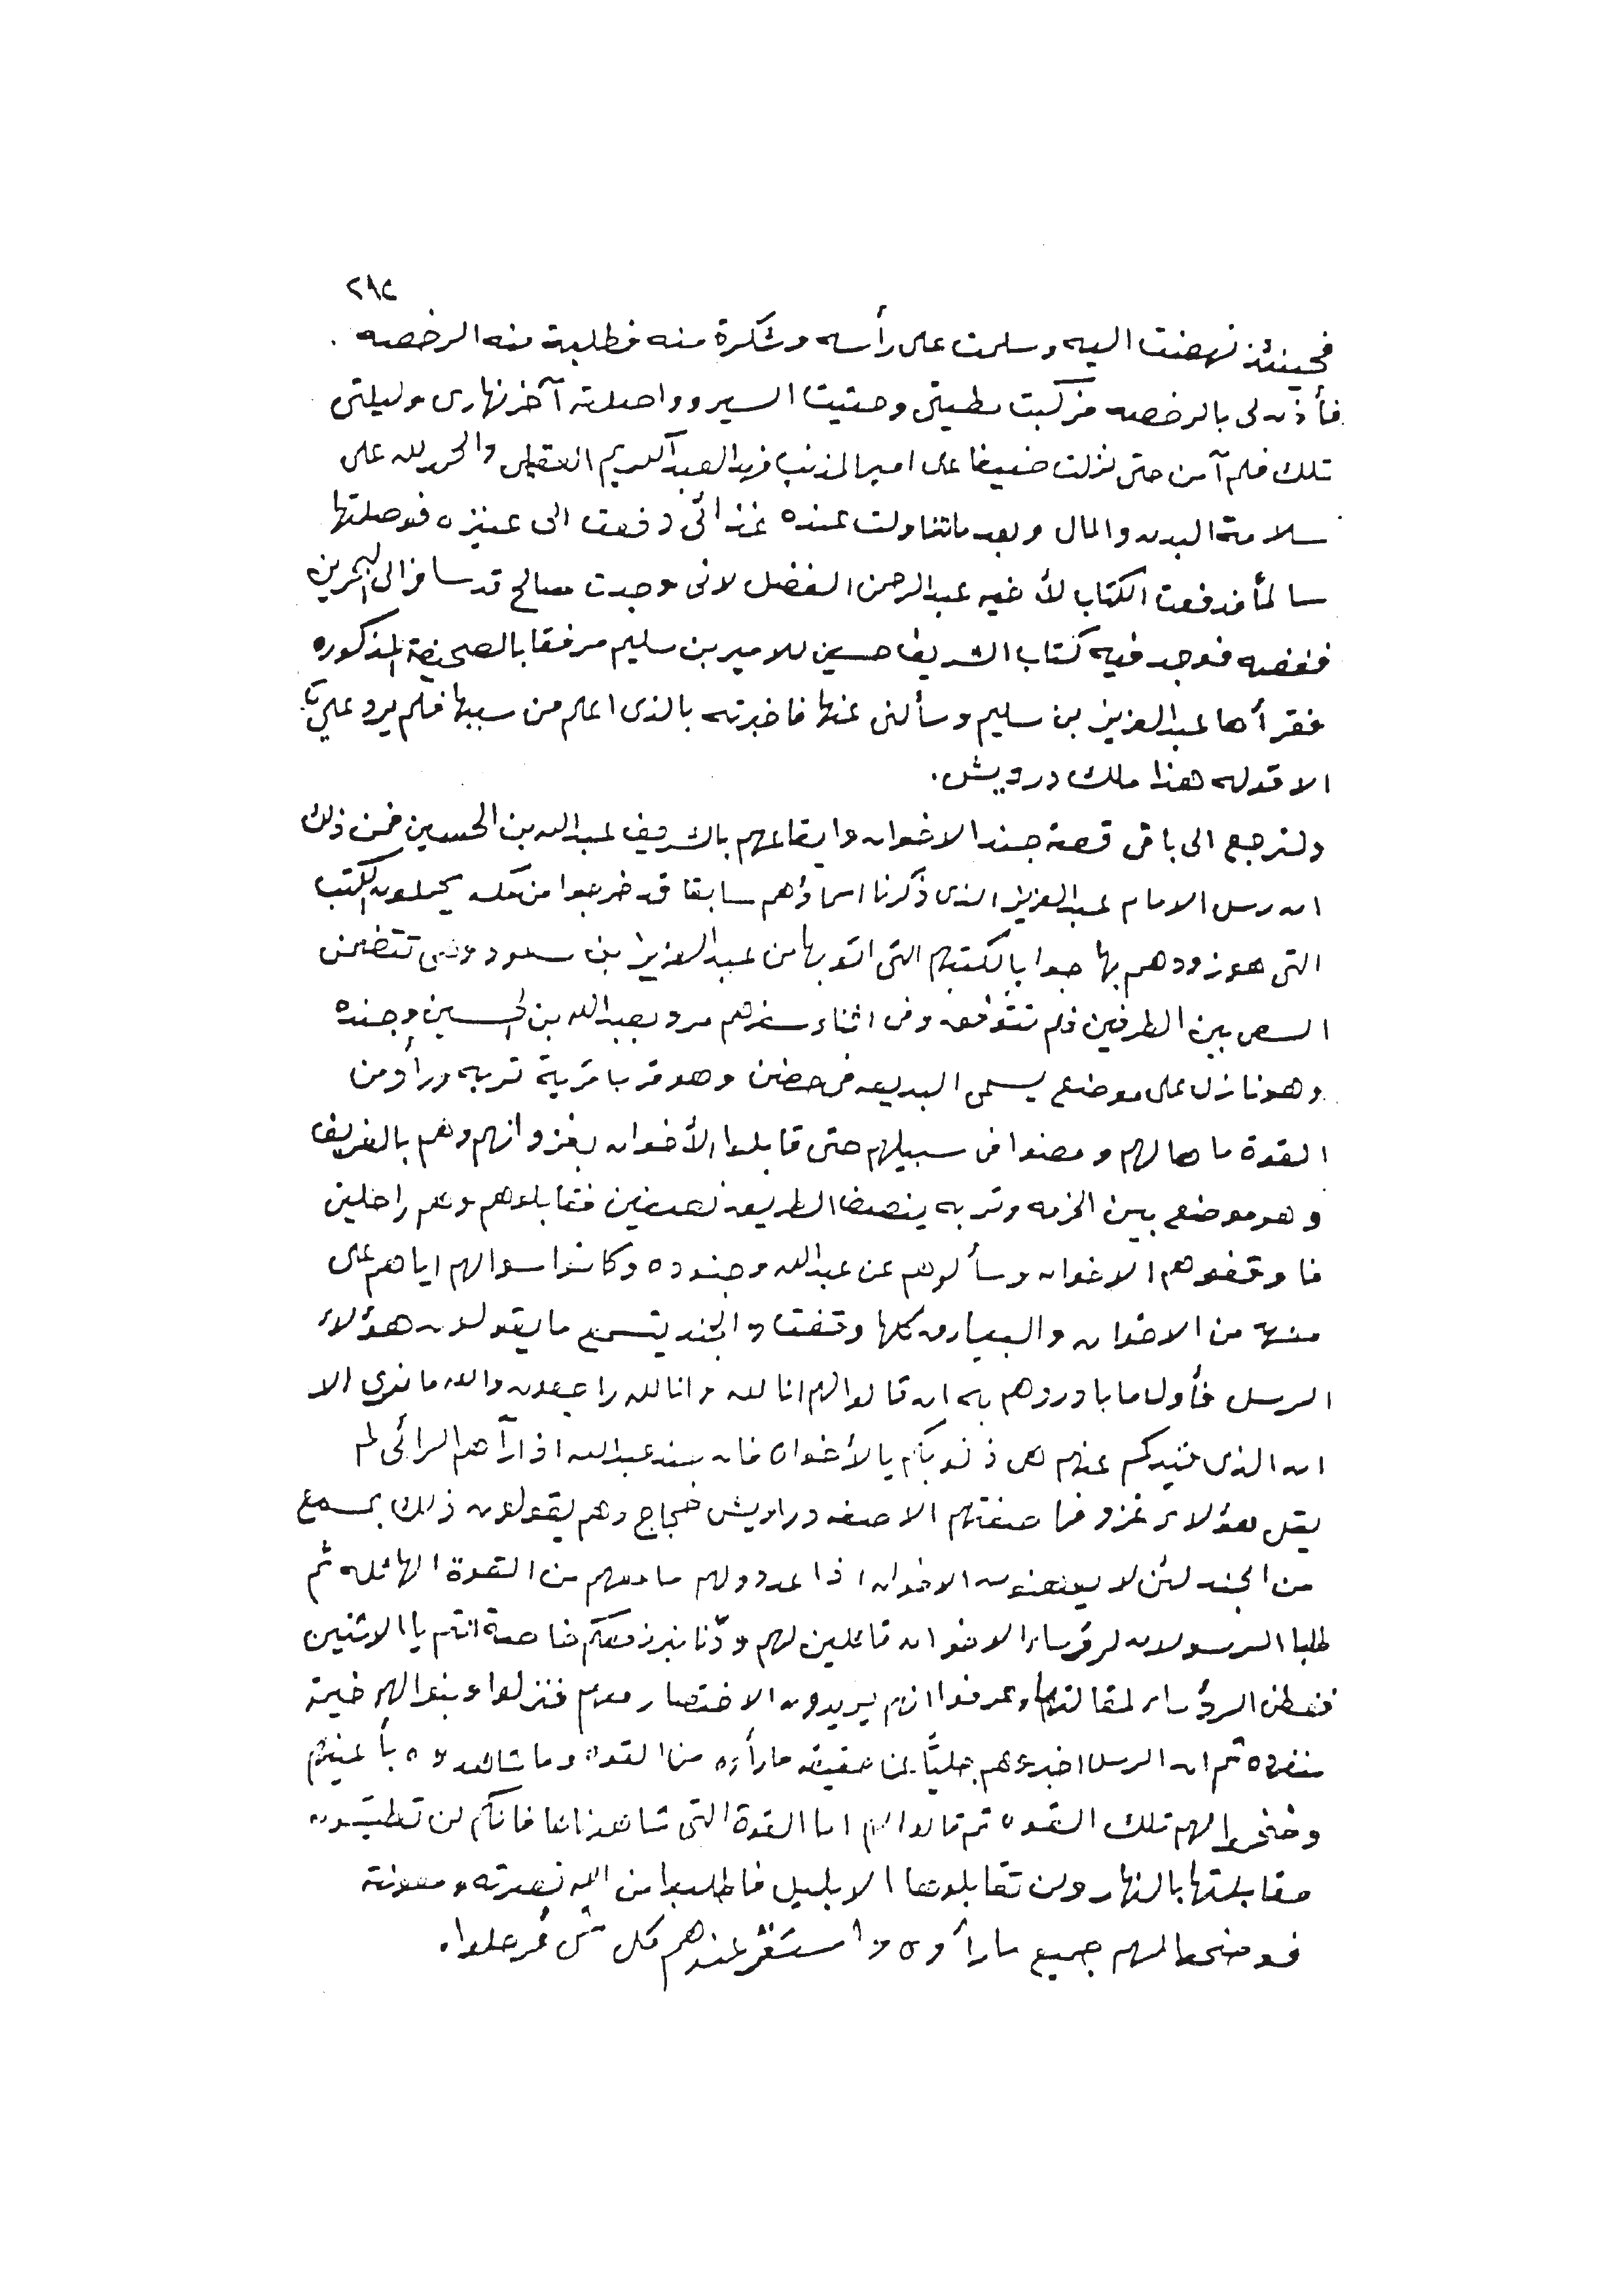 ٢٩٢
فحينئذ نهضت اليه وسلمت على رأسه وشكرة منه فطلبة منه الرخصه .
فأذن لى بالرخصه فركبت مطيتى وحتيت السير وواصلته آخر نهارى وليلتى
تلك فلم آمن حتى نزلت ضيفا على امير المذنب فهد العبد الكريم العقيلى والحمد لله على
سلامة البدن والمال وبعد ما تناولت عنده غذائى دفعت الى عنيزه فوصلتها
سالمأ فدفعت الكتاب لأخيه عبد الرحمن الفضل لانى وجدت صالح قد سافر الى البحرين
ففضه فوجد فيه كتاب الشريف حسين للامير بن سليم مرفقا بالصحيفة المذكوره
فقرأها عبد العزيز بن سليم وسألنى عنها فاخبرته بالذى اعلم من سببها فلم يرد علي
الا قوله هذا ملك درويش .
ولنرجع الى باقى قصة جند الاخوان وايقاعهم بالشريف عبد الله بن الحسين فمن ذلك
ان رسل الامام عبد العزيز الذى ذكرنا اسماؤهم سابقا قد خرجوا من مكه يحملون الكتب
التى هو زودهم بها جوابا لكتبهم التى اتو بها من عبد العزيز بن سعود وهى تتضمن
السعى بين الطرفين فلم تتوفق وفى اثناء سفرهم مرو بعبد الله بن الحسين وجنده
وهو نازل على موضع يسمى البديعه فى حضن وهو قربا قرية تربه ورأو من
القوة ما هالهم ومضوا فى سبيلهم حتى قابلوا الأخوان بغزوانهم وهم بالغريف
وهو موضع بين الخرمه وتربه ينصف الطريق نصفين فقابلوهم وهم راحلين
فاوقفوهم الاخوان وسألوهم عن عبد الله وجنوده وكانوا سوالهم اياهم على
منهة من الاخوان والبيارق كلها وقفت والجند يتسمع ما يقولون هؤلاء
الرسل فأول ما بادروهم به ان قالوا لهم انا لله وانا لله راجعون والله ما نرى الا
ان الذى قيدكم عنهم هى ذنوبكم يا لأخوان فان جند عبد الله اذا رآهم الرائى لم
يقل هؤلاء غزو فما صفتهم الا صفه دراويش حجاج وهم يقولون ذلك بمسمع
من الجند لئن لا يوهنون الاخوان اذا عددو لهم ما معهم من القوة الهائله ثم
طلبا الرسولان لرؤساء الاخوان قائلين لهم ودّنا نبرز معكم خاصة انتم يا الاثنين
ففطن الرؤساء لمقالتهما وعرفوا انهم يريدون الاختصار معهم فنزلوا وبنوا لهم خيمة
منفرده ثم ان الرسل اخبروهم جليًّا عن حقيقة ما رأوه من القوة وما شاهدوه بأعينهم
وضخموا لهم تلك القوه ثم قالوا لهم اما القوة التى شاهدناها فانكم لن تطيقون
مقابلتها بالنهار ولن تقابلوها الا بليل فاطلبوا من الله نصرته ومعونته
فوضحوا لهم جميع ما رأوه واستقر عندهم كل شى فرحلوا .